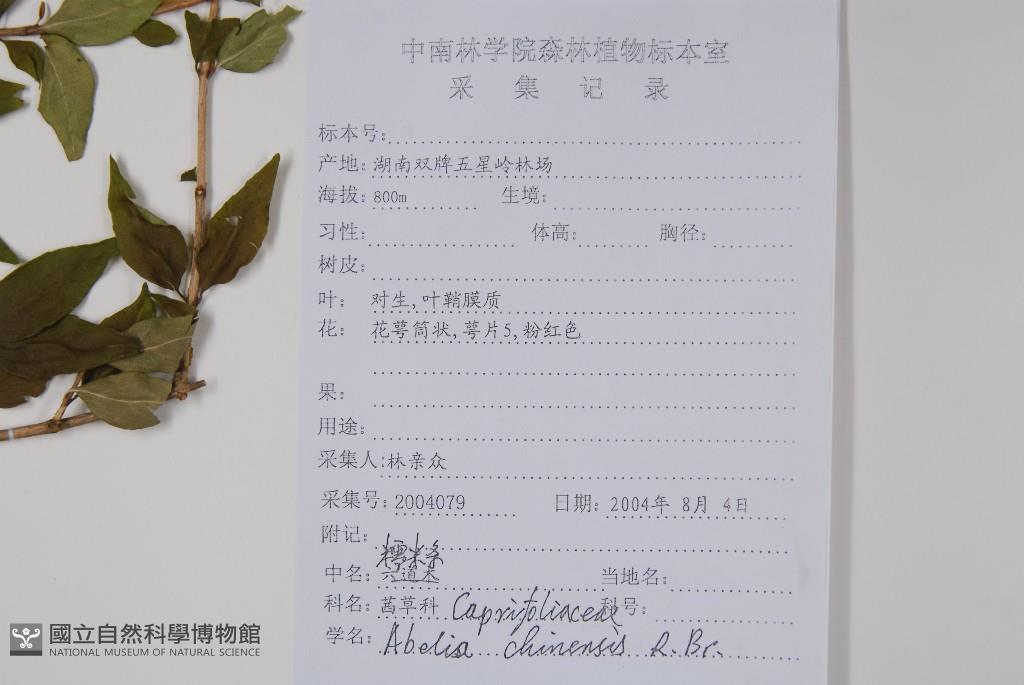 中南林学院森林植物标本室
采 集 记 录
标本号:
产地: 湖南双牌五星岭林场
海拔: 800m 生境:
习性: 体高: 胸径:
树皮:
叶: 对生,叶鞘膜质
花: 花萼筒状,萼片5,粉红色
果:
用途:
采集人:林亲众
采集号: 2004079 日期: 2004年 8月 4日
附记:
糯米条
中名: 六道木 当地名:
科名: 茜草科 Caprifoliaceae 科号:
学名: Abelia chinensis R. Br.
國立自然科學博物館
NATIONAL MUSEUM OF NATURAL SCIENCE